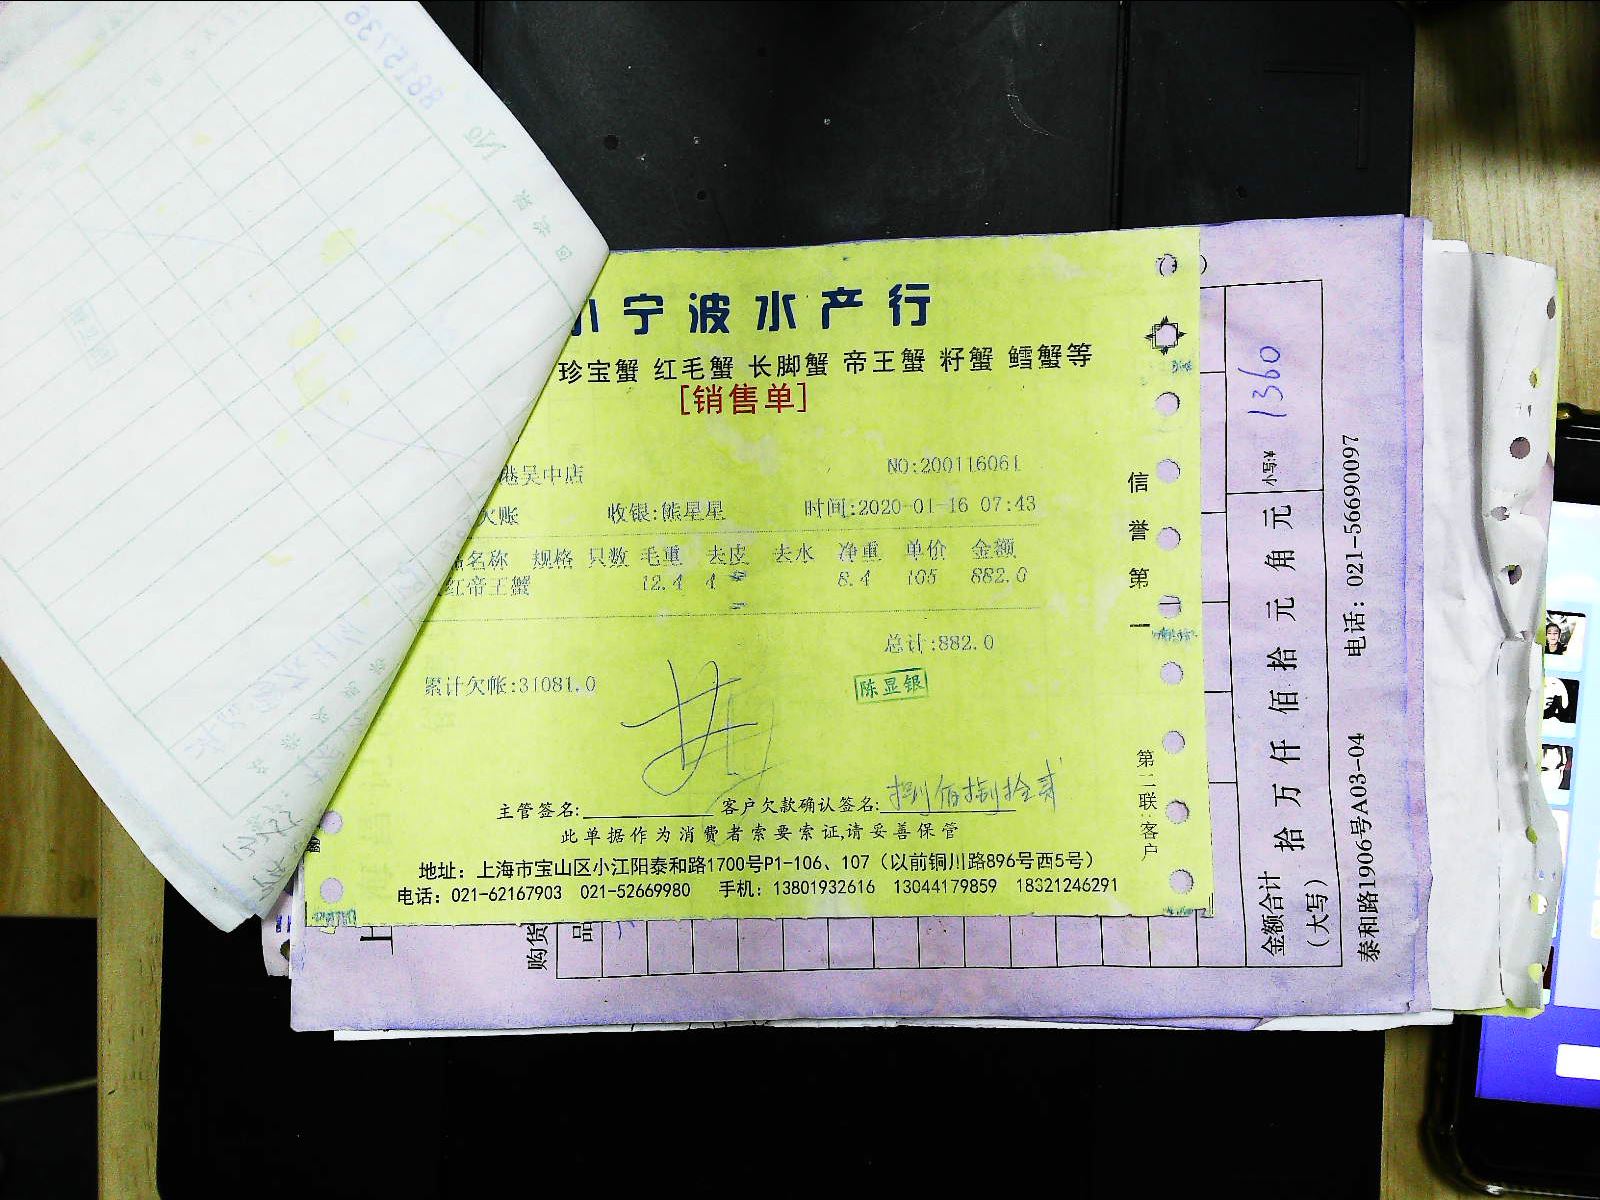 小宁波水产行
珍宝蟹 红毛蟹 长脚蟹 帝王蟹 籽蟹 鳕蟹等
[销售单]
港吴中店 NO:200116061
欠账 收银:熊星星 时间:2020-01-16 07:43
品名称 规格 只数 毛重 去皮 去水 净重 单价 金额
红帝王蟹 12.4 4 8.4 105 882.0
总计:882.0
累计欠帐:31081.0
陈显银
主管签名: 客户欠款确认签名: 捌佰捌拾贰
此单据作为消费者索要索证,请妥善保管
地址：上海市宝山区小江阳泰和路1700号P1-106、107（以前铜川路896号西5号）
电话：021-62167903 021-52669980 手机：13801932616 13044179859 18321246291
信誉第一
第二联:客户
购货
品
金额合计（大写） 拾 万 仟 佰 拾 元 角 元 小写:¥ 1360
泰和路1906号A03-04 电话：021-56690097
8815736